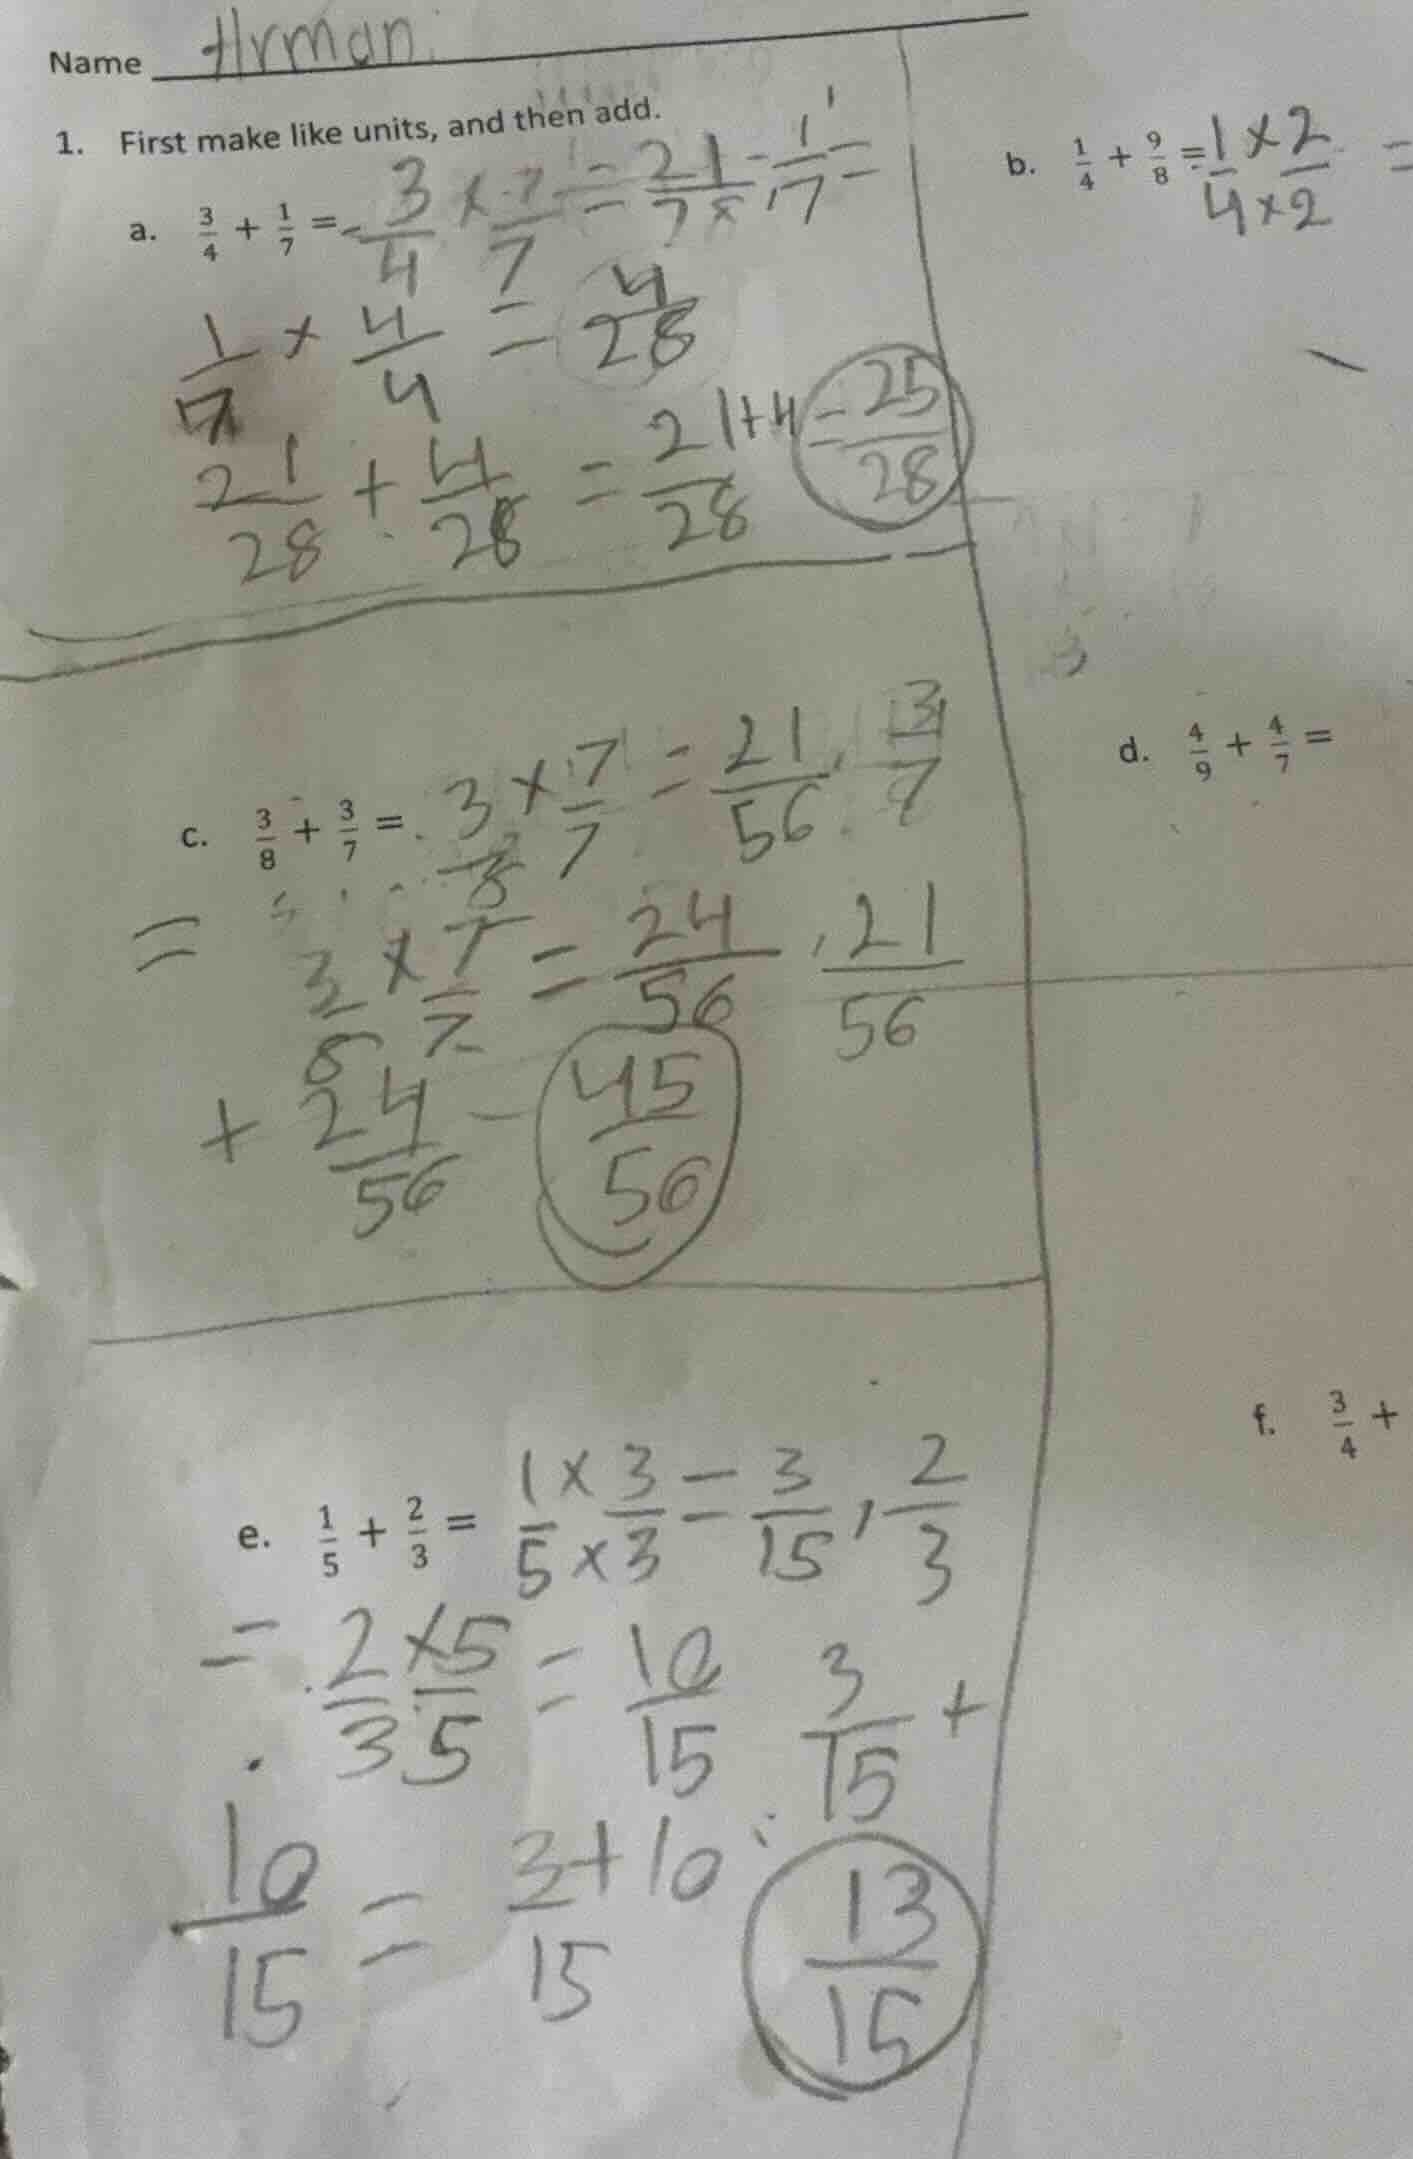 Name Arman
1. First make like units, and then add.
a. 3/4 + 1/7 = 3/4 × 7/7 = 21/28, 1/7 =
1/7 × 4/4 = 4/28
21/28 + 4/28 = 21+4/28 = 25/28
b. 1/4 + 9/8 = 1×2/4×2 =
c. 3/8 + 3/7 = 3/8 × 7/7 = 21/56, 3/7
= 3/8 × 7/7 = 24/56, 21/56
+ 24/56 - 45/56
d. 4/9 + 4/7 =
e. 1/5 + 2/3 = 1×3/5×3 = 3/15, 2/3
= 2/3 × 5/5 = 10/15 3/15 +
10/15 = 3+10/15 13/15
f. 3/4 +